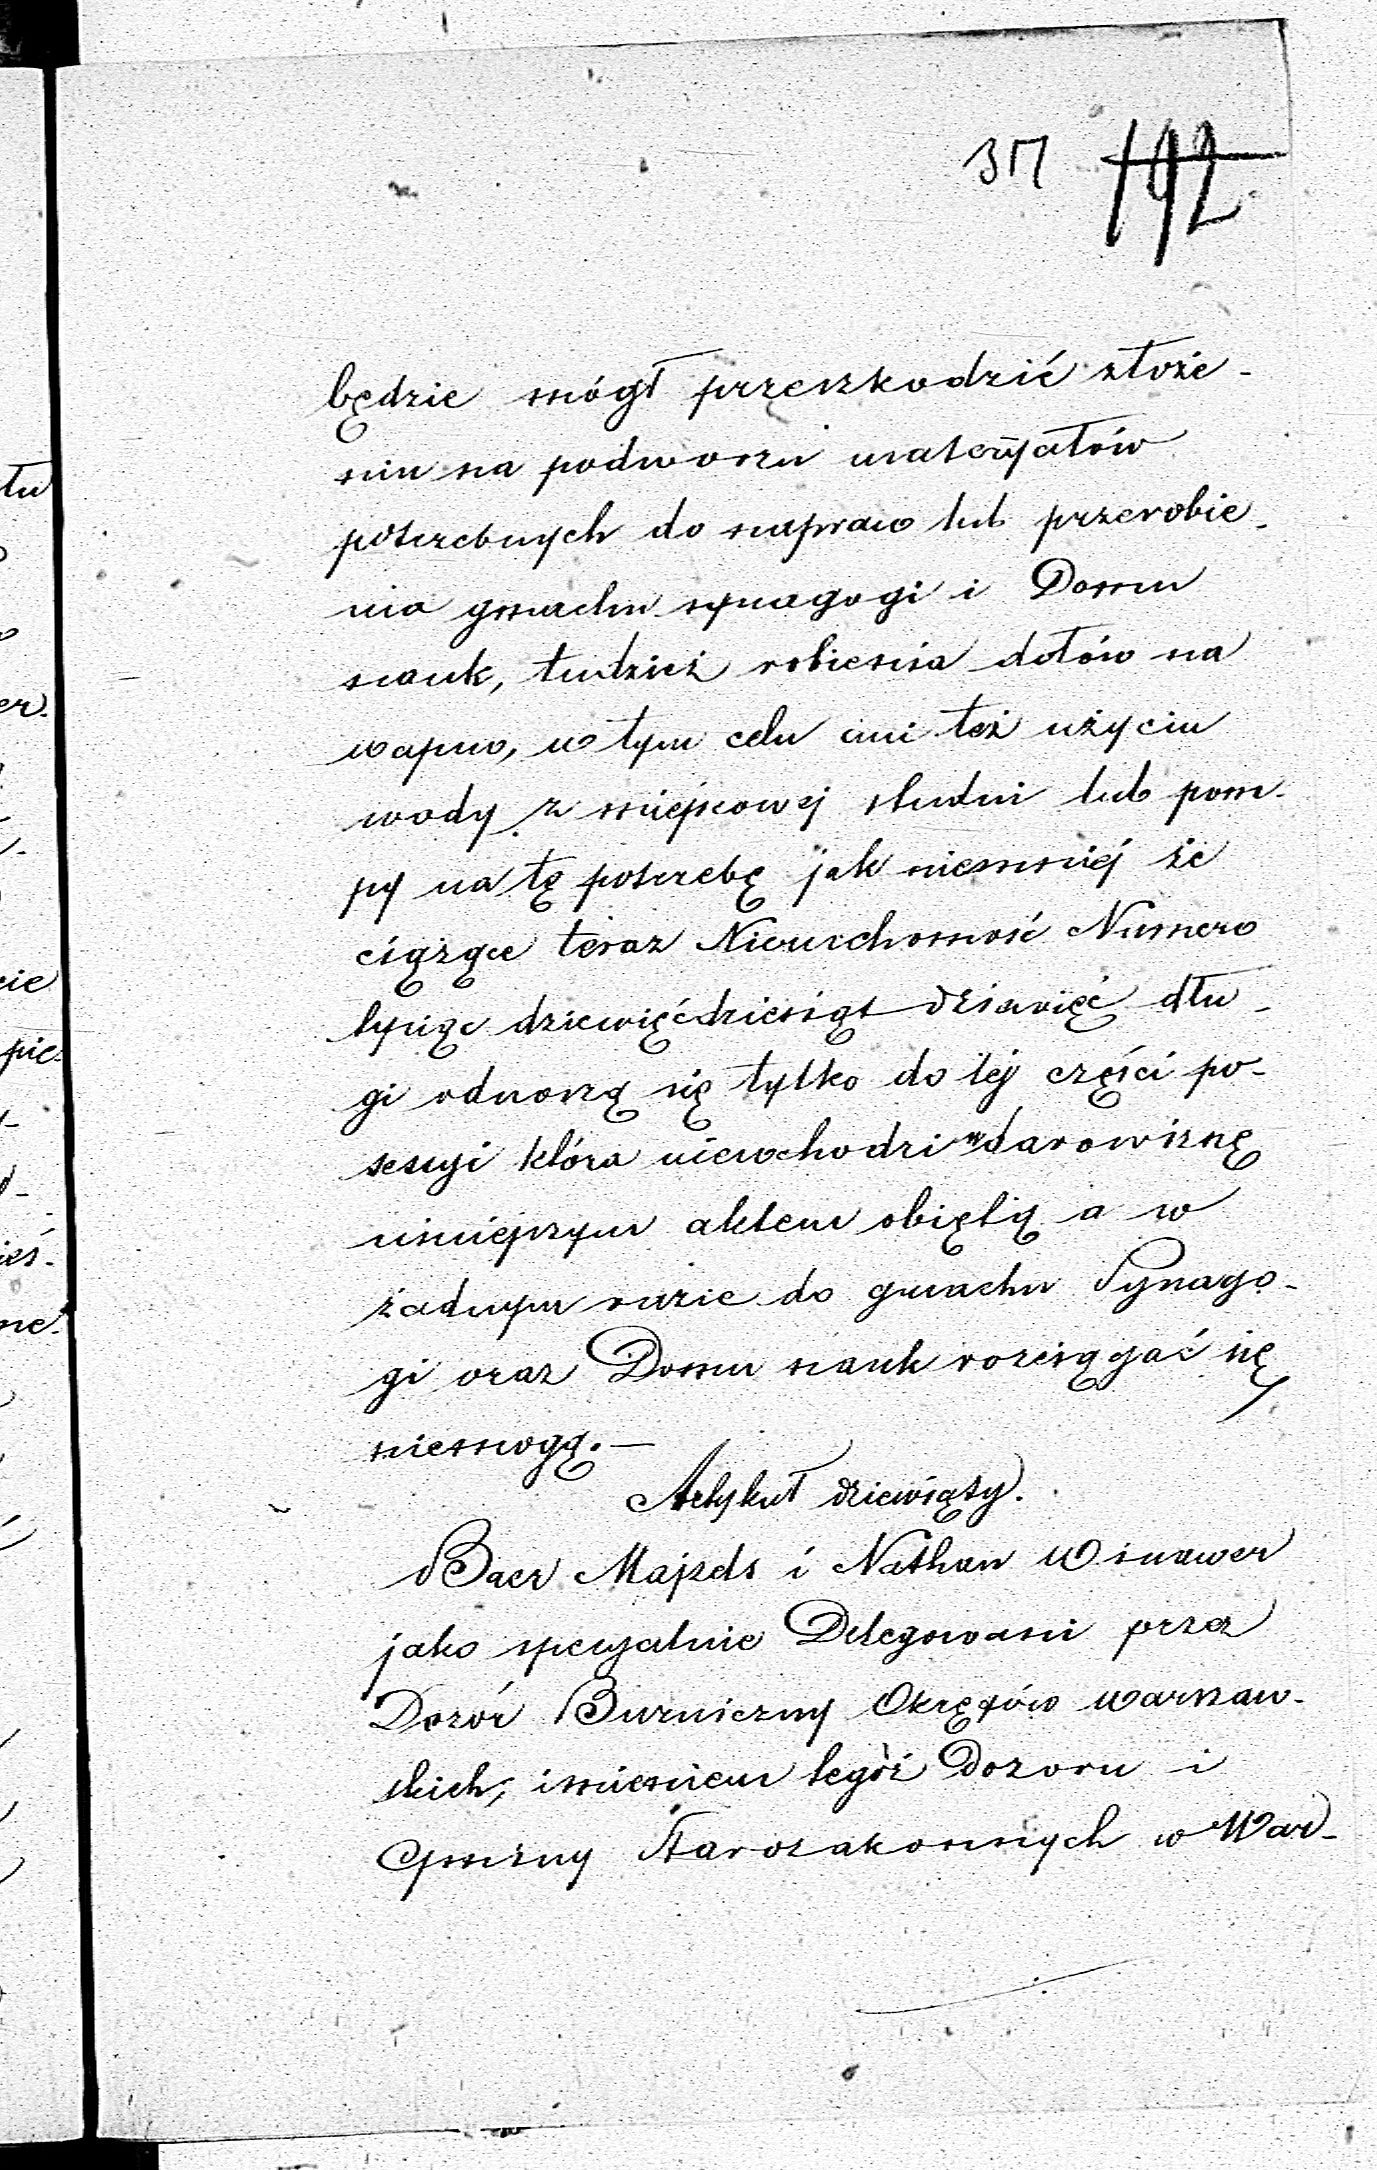 317 192
będzie mógł przeszkodzić złoże-
niu na podworzu materyjałów
potrzebnych do napraw lub przerobie-
nia gmachu synagogi i Domu
nauk, tudzież robienia dołów na
wapno, w tym celu ani też użyciu
wody z miejscowej studni lub pom-
py na tę potrzebę jak niemniej że
ciążące teraz Nieruchomość Numero
tysiąc dziewięćdziesiąt dziewięć dłu-
gi odnoszą się tylko do tej części po-
sesyi która niewchodzi w darowiznę
niniejszym aktem objętą a w
żadnym razie do gmachu Synago-
gi oraz Domu nauk rozciągać się
niemogą.—
Artykuł dziewiąty.
Baer Majzels i Nathan Winawer
jako specyalnie Delegowani przez
Dozór Bużniczny Okręgów warszaw-
skich, imieniem tegóż Dozoru i
Gminy Starozakonnych w War-